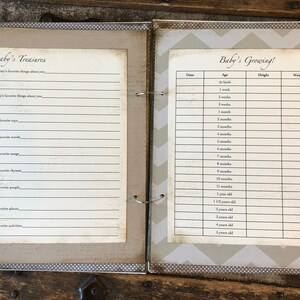 by's Treasures
favorite things about you...
favorite things about you...
favorite toys...
favorite words...
favorite songs...
favorite rhymes...
favorite people...
favorite places...
favorite activities...
Baby's Growing!
Date Age Height Wei
At birth
1 week
2 weeks
3 weeks
1 month
2 months
3 months
4 months
5 months
6 months
7 months
8 months
9 months
10 months
11 months
1 year old
1 1/2 years old
2 years old
3 years old
4 years old
5 years old